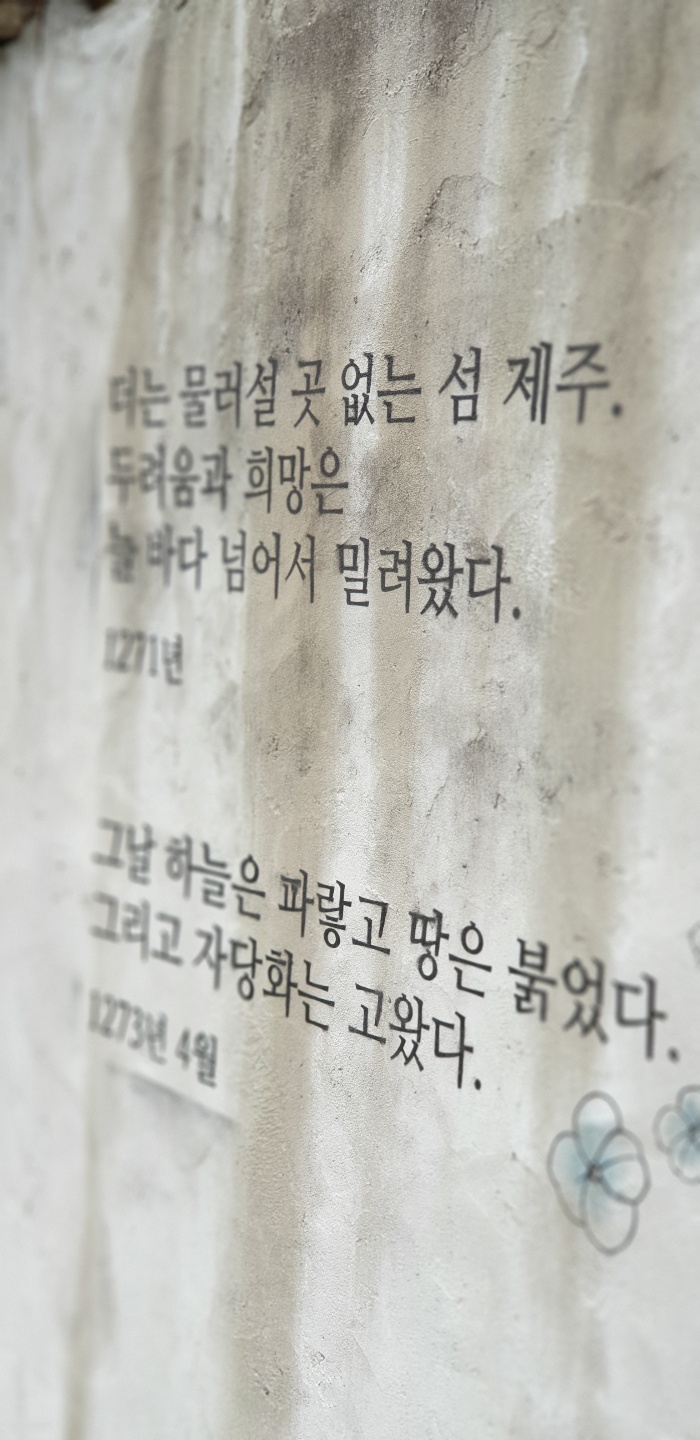 더는 물러설 곳 없는 섬 제주.
두려움과 희망은
늘 바다 넘어서 밀려왔다.
1271년
그날 하늘은 파랗고 땅은 붉었다.
그리고 자당화는 고왔다.
1273년 4월